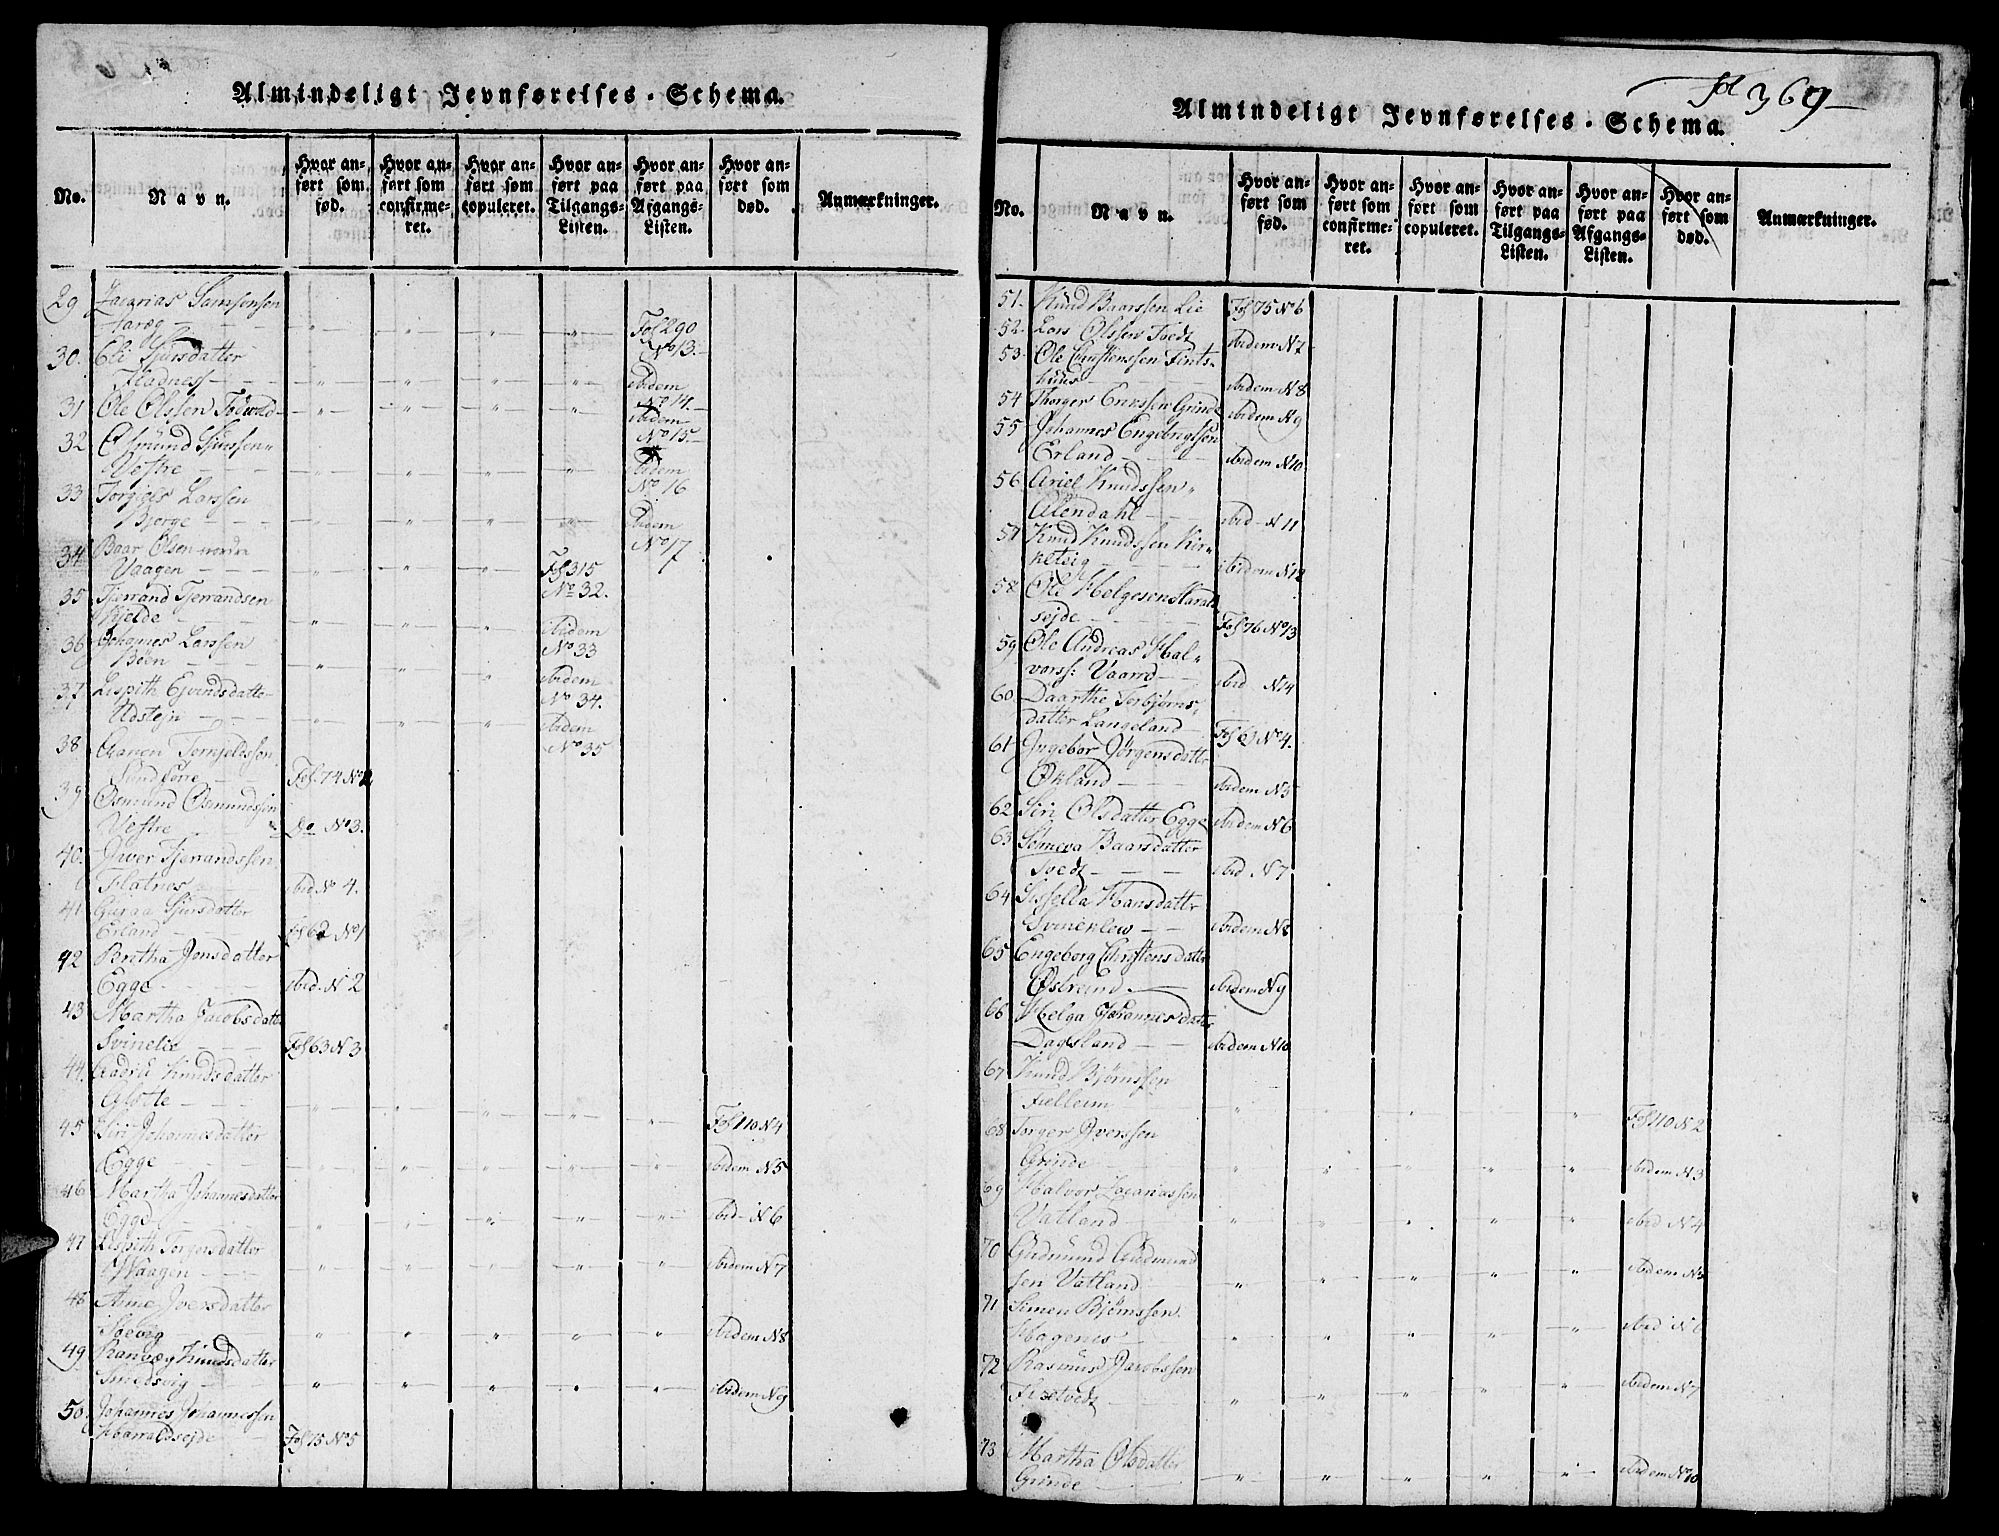 Almindeligt Jevnførelses-Schema.
No. Navn. Hvor anført som fød. Hvor anført som confirmeret. Hvor anført som copuleret. Hvor anført paa Tilgangs-Listen. Hvor anført paa Afgangs-Listen. Hvor anført som død. Anmærkninger.
29 Zacarias Samsonsen
Fol 290
No 13.
30. Eli Sjursdatter
Fladness ibidem
No 14.
31 Ole Olsen ibidem
No 15.
32. Osmund Sjursen
Vestre ibidem
No 16
33 Torgies Larssen
Bjerge ibidem
No 17
34 Baar Olsen nordre
Vaagen Fol 315
No 32.
35 Tjerrand Tjerrandsen
Kjelde ibidem
No 33
36 Johannes Larssen
Bøen ibidem
No 34.
37 Lispith Ejvindsdatter
Udstejn ibidem
No 35
38 Gunnar Tormjeldssen
Søndførre Fol. 74 No 2
39 Osmund Osmundssen
Vestre Do No 3.
40. Iver Tjerrandssen
Flatnes ibid No 4.
41 Guraa Sjursdatter
Erland Fol 62 No 1
42 Britha Jonsdatter
Egge ibid. N 2
43 Martha Jacobsdatter
Svinelie Fol 63 N 3
44. Knudsdatter
Fol 110 N 4
45 Siri Johannesdatter
Egge ibidem N 5
46 Martha Johannesdatter
Egge ibid N 6
47 Lispith Torgersdatter
Waagen ibidem N 7
48 Anne Iversdatter
ibidem N 8
49 Ranvæg Knudsdatter
Smedsvig ibidem N 9
50. Johannes Johannessen
Harraldsejde Fol 75 No 5
fol 369
Almindeligt Jevnførelses-Schema.
No. Navn. Hvor anført som fød. Hvor anført som confirmeret. Hvor anført som copuleret. Hvor anført paa Tilgangs-Listen. Hvor anført paa Afgangs-Listen. Hvor anført som død. Anmærkninger.
51. Knud Baarssen Lie Fol 75 No 6
52. Lars Olssen Tvedt ibidem N 7
53. Ole Christenssen Fints-
huus ibidem N 8
54 Thorger Ericssen Grinde ibidem N 9
55 Johannes Engebrigtsen
Erland ibidem N 10
56. Ariel Knudssen
Alendahl ibid N 11
57 Knud Knudssen Kir-
keteig ibidem N 12
58. Ole Helgesen Harald
sejde Fol 76 No 13
59 Ole Andreas Hal-
vorss: Vaarrd ibid N 14
60. Daarthe Torbjørns-
datter Langeland Fol 63 No 4.
61 Ingebor Jørgensdatter
Økland ibidem N 5
62 Siri Olsdatter Egge ibidem N 6
63 Sønneva Baarsdatter
Tvedt ibid N 7
64 Sissella Hansdatter
Svineklew ibidem N 8
65 Engeborg Christensdatter
Østreim ibidem N 9
66 Helga Johannesdatter
Dagsland ibidem N 10
67 Knud Bjørnssen
Fielleim Fol 110 N 2
68 Torger Iverssen
Grinde ibidem N 3
69 Halvor Zacariassen
Vatland ibid N 4
70 Gudmund Gudmund
sen Vatland ibidem N 5
71 Simen Bjørnssen.
Hagenes ibid N 6
72 Rasmus Jacobssen
Fixtvedt ibidem N 7
73 Martha Olsdatter
Grinde ibidem No 10